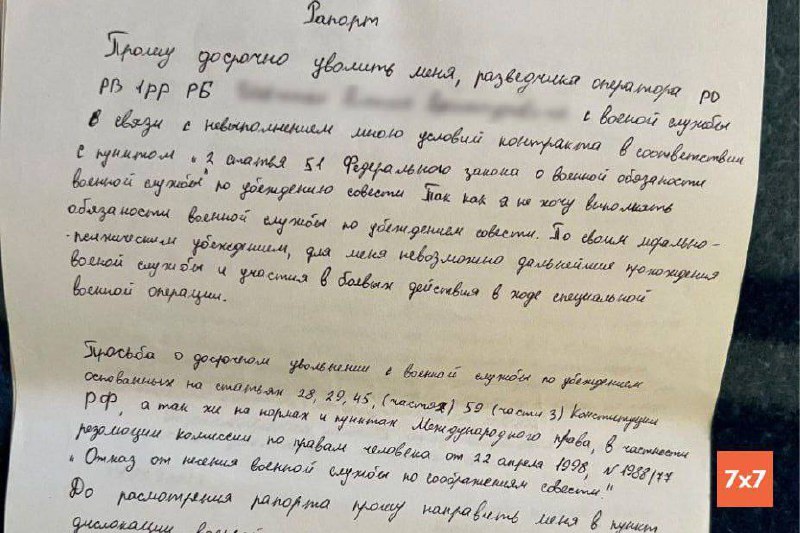 Рапорт
Прошу досрочно уволить меня, разведчика оператора РО
РВ 1РР РБ
с военой службы
в связи с невыполнением мною условий контракта в соответствии
с пунктом "2 статья 51 Федерального закона о военой обязаности
военой службы" по убеждению совести Так как я не хочу выполнять
обязаности военой службы по убеждением совести. По своим морально-
-психическим убеждением, для меня невозможно дальнейшие прохождения
военой службы и участия в боевых действия в ходе специальной
военой операции.
Просьба о досрочном увольнении с военой службы по убеждением
основанных на статьях 28, 29, 45, (частях) 59 (части 3) Конституции
РФ, а так жи на нормах и пунктах Международного права, в частности
резолюции комиссии по правам человека от 22 апреля 1998, N 1998/77
"Отказ от несения военой службы по соображениям совести."
До расмотрения рапорта прошу направить меня в пункт
дислокации
7x7